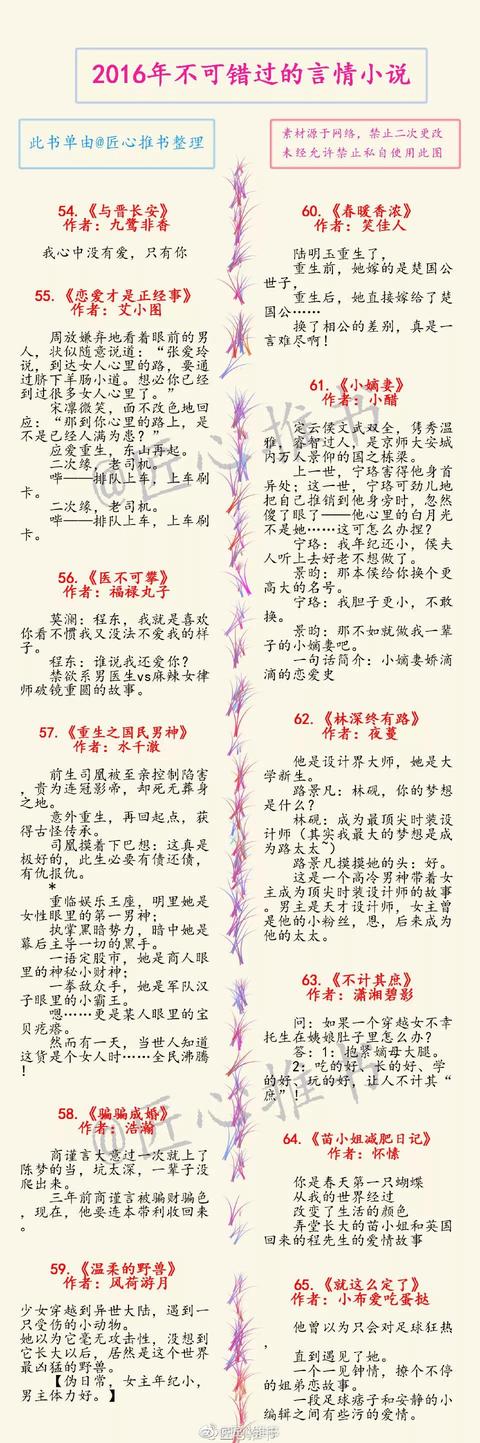 2016年不可错过的言情小说
此书单由@匠心推书整理
素材源于网络，禁止二次更改
未经允许禁止私自使用此图
54.《与晋长安》
作者：九鹭非香
我心中没有爱，只有你
55.《恋爱才是正经事》
作者：艾小图
周放嫌弃地看着眼前的男
人，状似随意说道：“张爱玲
说，到达女人心里的路，要通
过脐下羊肠小道。想必你已经
到过很多女人心里了。”
宋凛微笑，面不改色地回
应：“那到你心里的路上，是
不是已经人满为患？”
应爱重生，东山再起。
二次缘，老司机。
哔——排队上车，上车刷
卡。
二次缘，老司机。
哔——排队上车，上车刷
卡。
56.《医不可攀》
作者：福禄丸子
莫澜：程东，我就是喜欢
你看不惯我又没法不爱我的样
子。
程东：谁说我还爱你？
禁欲系男医生vs麻辣女律
师破镜重圆的故事。
57.《重生之国民男神》
作者：水千澈
前生司凰被至亲控制陷害
，贵为连冠影帝，却死无葬身
之地。
意外重生，再回起点，获
得古怪传承。
司凰摸着下巴想：这真是
极好的，此生必要有债还债，
有仇报仇。
*
重临娱乐王座，明里她是
女性眼里的第一男神；
执掌黑暗势力，暗中她是
幕后主导一切的黑手。
一语定股市，她是商人眼
里的神秘小财神；
一拳敌众手，她是军队汉
子眼里的小霸王。
嗯……更是某人眼里的宝
贝疙瘩。
然而有一天，当世人知道
这货是个女人时……全民沸腾
！
58.《骗骗成婚》
作者：浩瀚
商谨言大意过一次就上了
陈梦的当，坑太深，一辈子没
爬出来。
三年前商谨言被骗财骗色
，现在，他要连本带利收回来
。
59.《温柔的野兽》
作者：风荷游月
少女穿越到异世大陆，遇到一
只受伤的小动物。
她以为它毫无攻击性，没想到
它长大以后，居然是这个世界
最凶猛的野兽。
【伪日常，女主年纪小，
男主体力好。】
60.《春暖香浓》
作者：笑佳人
陆明玉重生了，
重生前，她嫁的是楚国公
世子，
重生后，她直接嫁给了楚
国公……
换了相公的差别，真是一
言难尽啊！
61.《小嫡妻》
作者：小醋
定云侯文武双全，隽秀温
雅，睿智过人，是京师大安城
内万人景仰的国之栋梁。
上一世，宁珞害得他身首
异处；这一世，宁珞可劲儿地
把自己推销到他身旁时，忽然
傻了眼了——他心里的白月光
不是她……这可怎么办捏？
宁珞：我年纪还小，侯夫
人听上去好老不想做了。
景昀：那本侯给你换个更
高大的名号。
宁珞：我胆子更小，不敢
换。
景昀：那不如就做我一辈
子的小嫡妻吧。
一句话简介：小嫡妻娇滴
滴的恋爱史
62.《林深终有路》
作者：夜蔓
他是设计界大师，她是大
学新生。
路景凡：林砚，你的梦想
是什么？
林砚：成为最顶尖时装设
计师（其实我最大的梦想是成
为路太太~）
路景凡摸摸她的头：好。
这是一个高冷男神带着女
主成为顶尖时装设计师的故事
。男主是天才设计师，女主曾
是他的小粉丝，恩，后来成为
他的太太。
63.《不计其庶》
作者：潇湘碧影
问：如果一个穿越女不幸
托生在姨娘肚子里怎么办？
答：1：抱紧嫡母大腿。
2：吃的好、长的好、学
的好、玩的好，让人不计其“
庶”！
64.《苗小姐减肥日记》
作者：怀愫
你是春天第一只蝴蝶
从我的世界经过
改变了生活的颜色
弄堂长大的苗小姐和英国
回来的程先生的爱情故事
65.《就这么定了》
作者：小布爱吃蛋挞
他曾以为只会对足球狂热
，
直到遇见了她。
一个一见钟情，撩个不停
的姐弟恋故事。
一段足球痞子和安静的小
编辑之间有些污的爱情。
@匠心推书
@匠心推书
@匠心推书